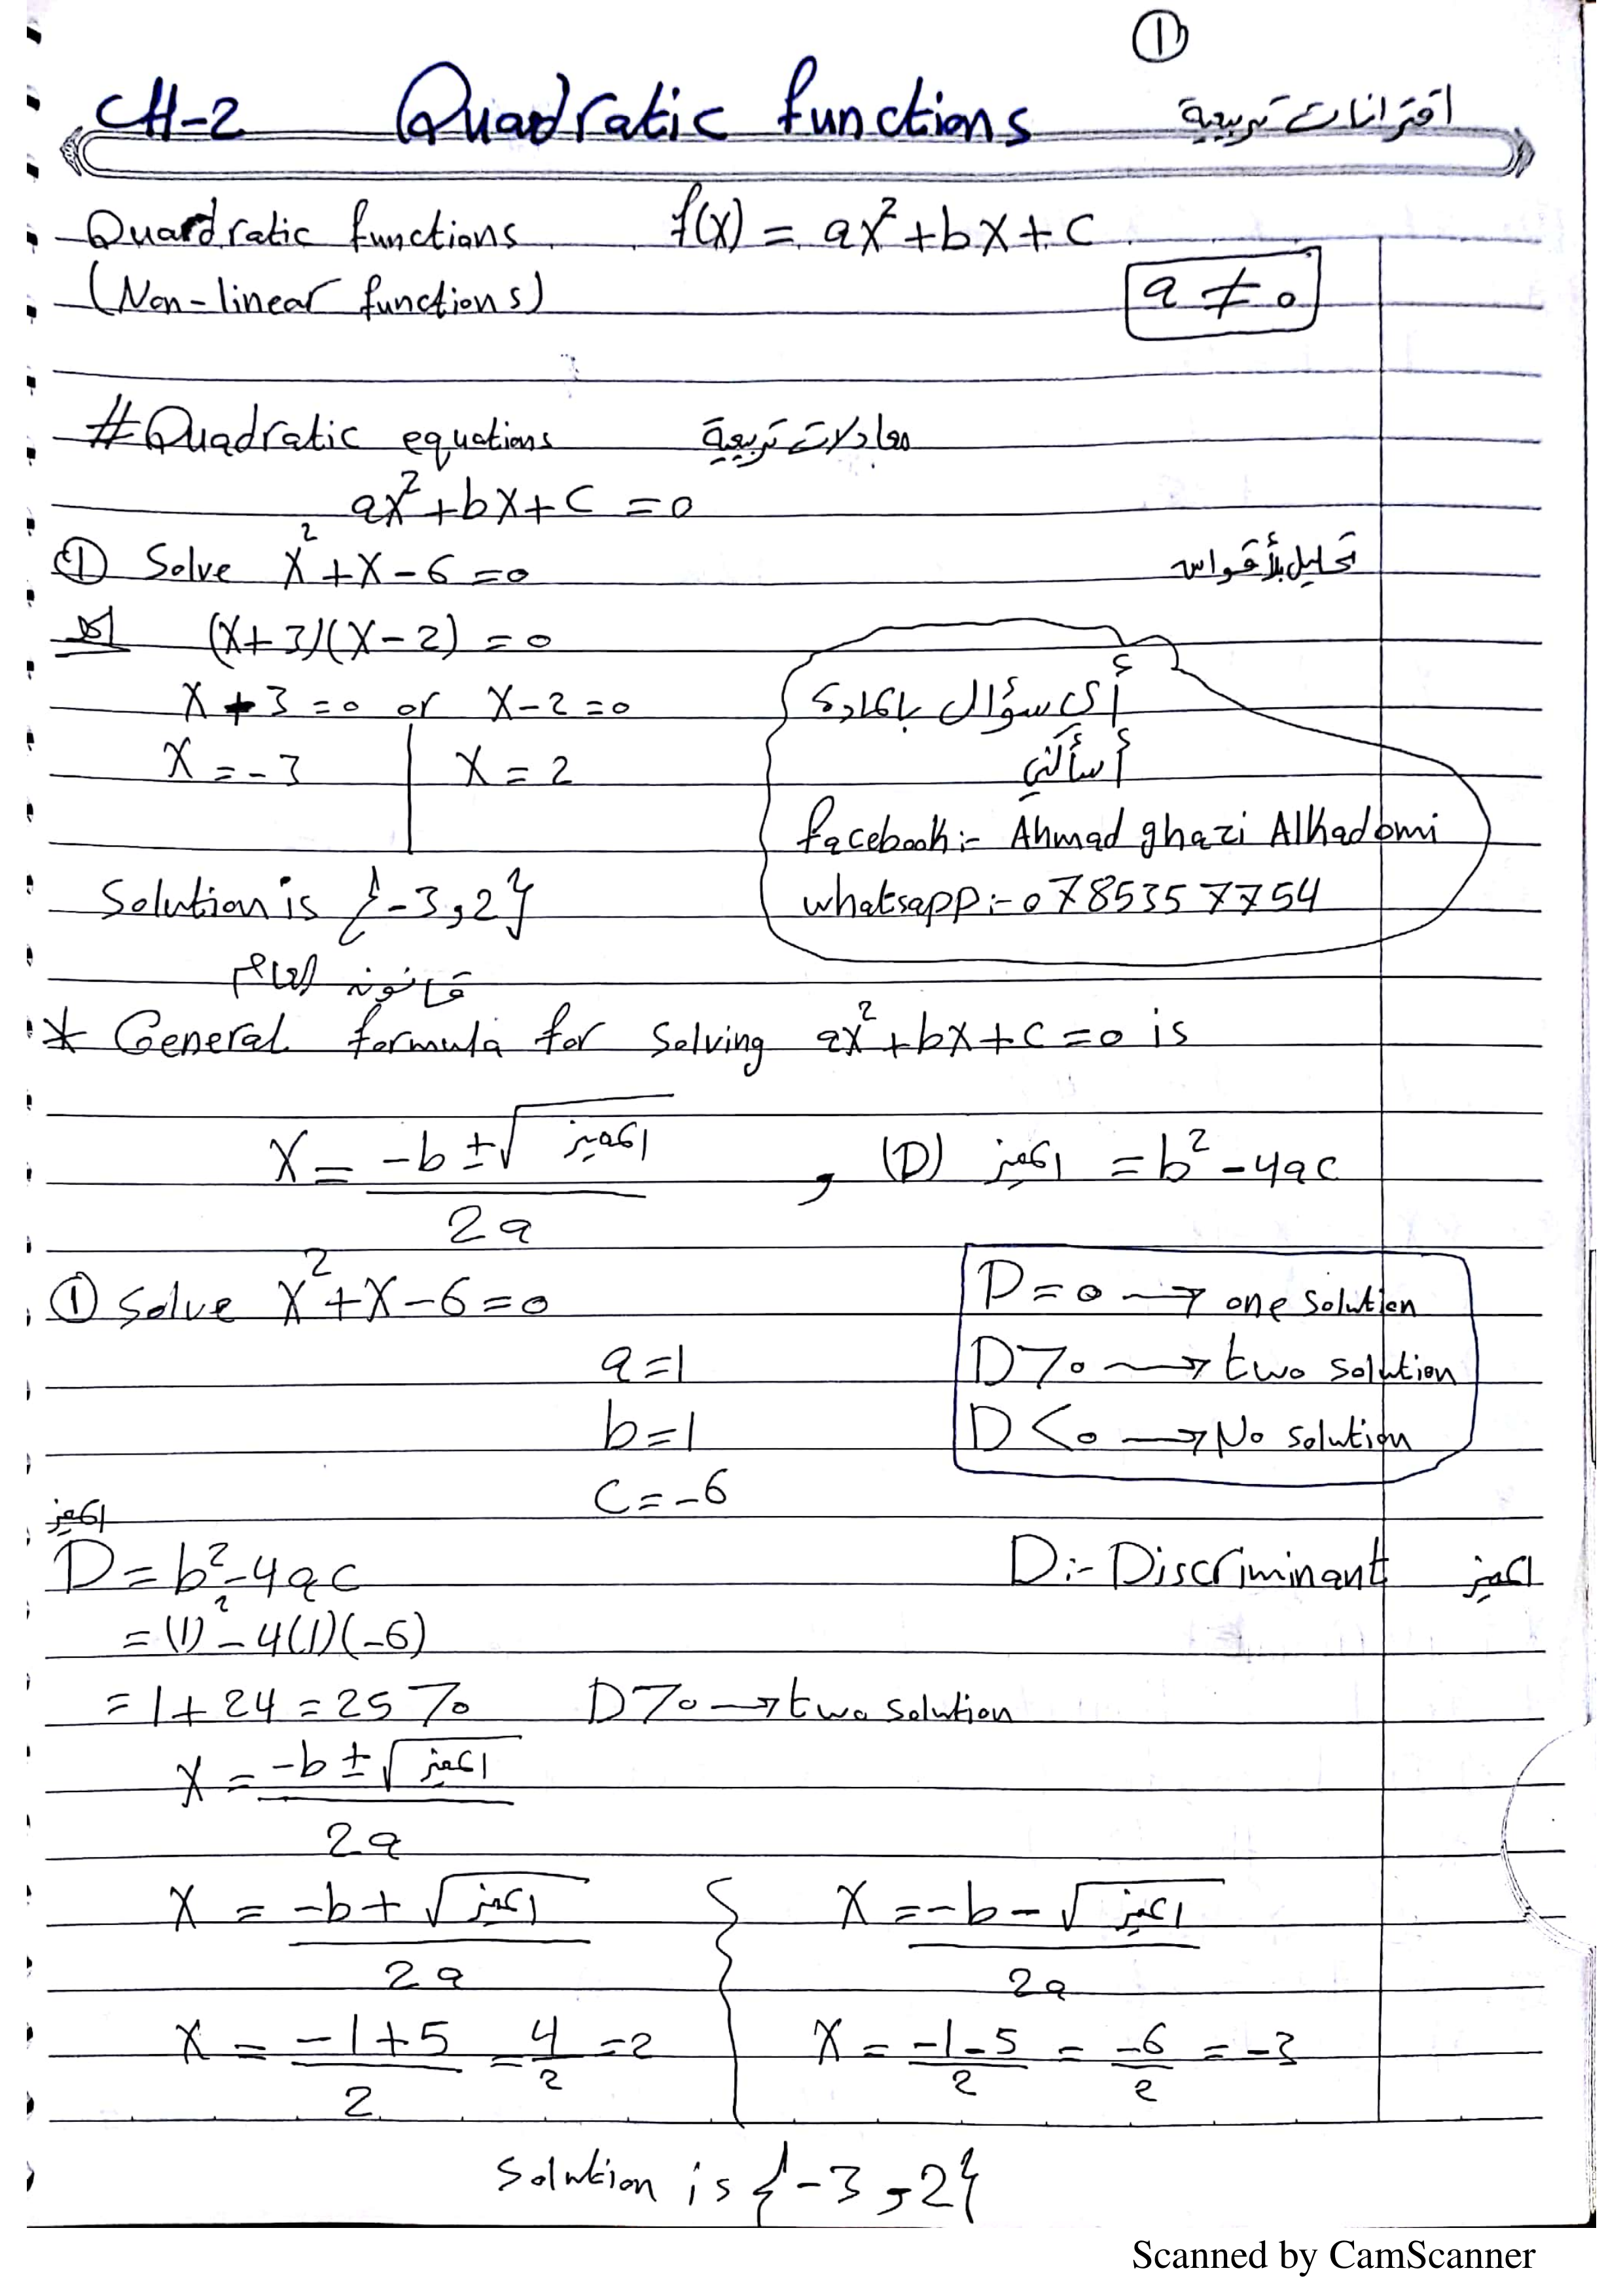 ①
CH-2 Quadratic functions اقترانات تربيعية
Quardratic functions f(x) = ax²+bx+c
(Non-linear functions) a ≠ 0
#Quadratic equations معادلات تربيعية
ax²+bx+c = 0
① Solve x²+x-6=0 تحليل بلأقواس
(x+3)(x-2) = 0
x+3=0 or x-2=0
x=-3 x=2
Solution is {-3,2}
أي سؤال بالمادة
أسألني
facebook:- Ahmad ghazi Alkadomi
whatsapp:- 0785357754
قانون العام
* General formula for solving ax²+bx+c=0 is
x = -b±√المميز / 2a , (D) المميز = b²-4ac
① Solve x²+x-6=0
a=1
b=1
c=-6
D=0 → one solution
D>0 → two solution
D<0 → No solution
المميز
D=b²-4ac D:- Discriminant المميز
=(1)²-4(1)(-6)
=1+24=25>0 D>0 → two solution
x = -b±√المميز / 2a
x = -b+√المميز / 2a x = -b-√المميز / 2a
x = -1+5 / 2 = 4/2 = 2 x = -1-5 / 2 = -6/2 = -3
Solution is {-3,2}
Scanned by CamScanner